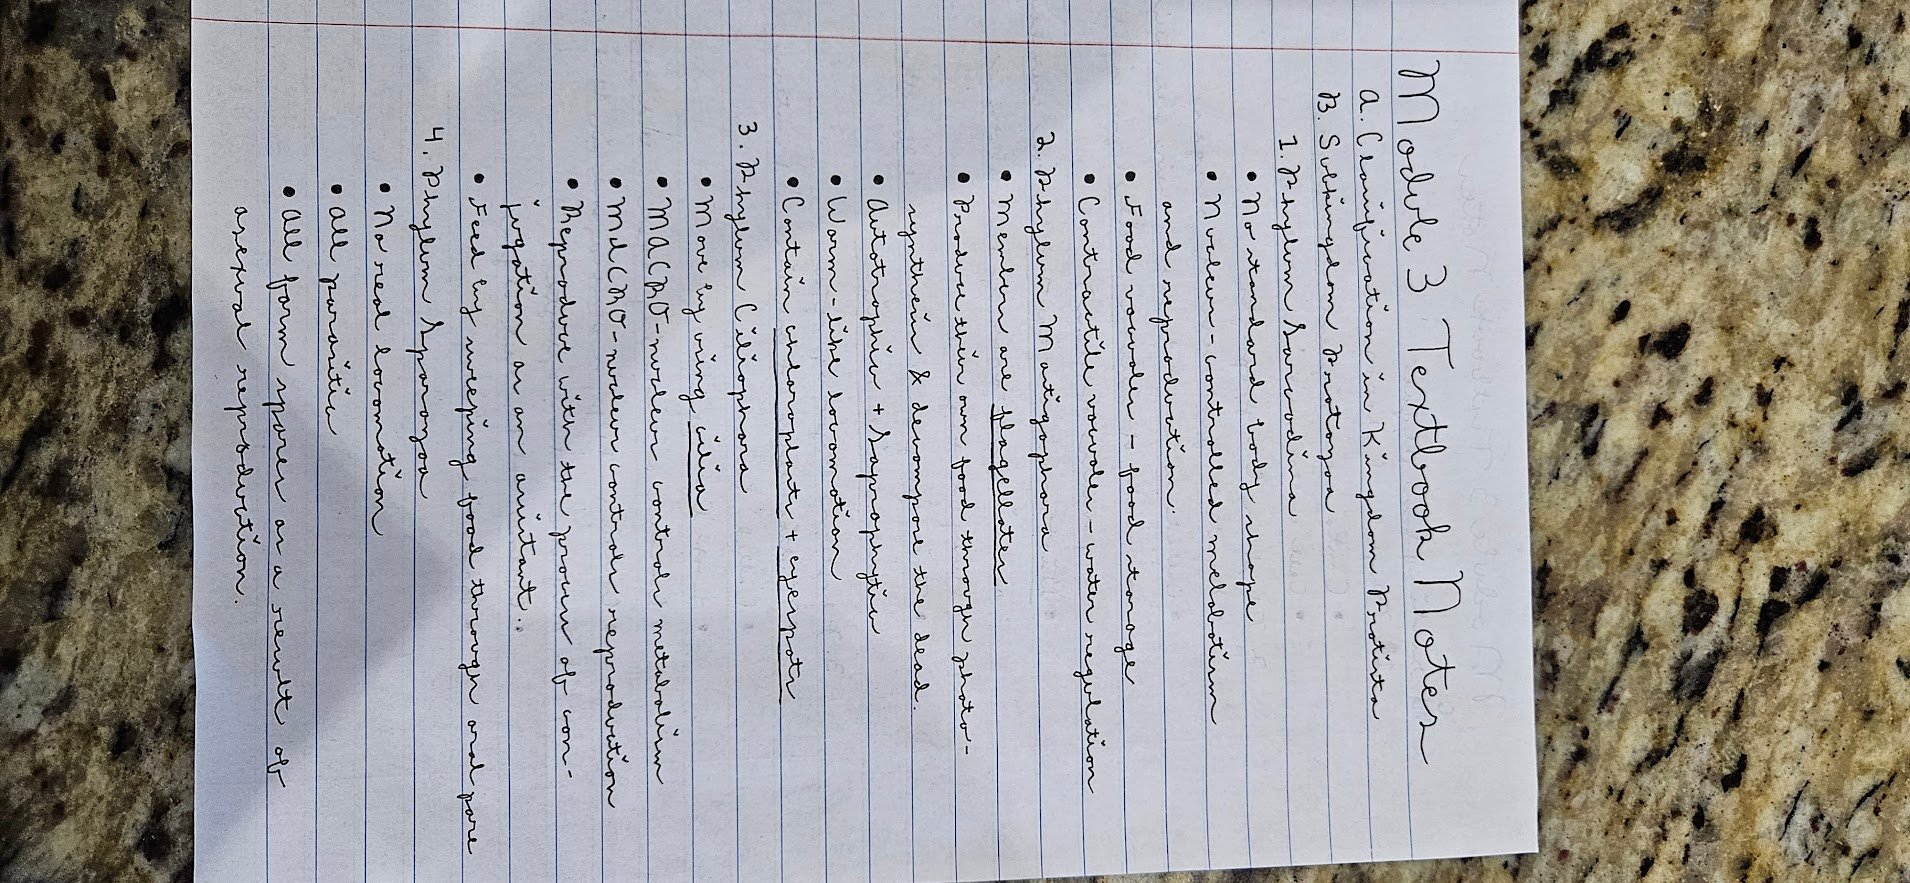 Module 3 Textbook Notes
A. Classification in Kingdom Protista
B. Subkingdom Protozoa
1. Phylum Sarcodina
• No standard body shape
• Nucleus - controlled metabolism
and reproduction.
• Food vacuoles - food storage
• Contractile vacuoles - water regulation
2. Phylum Mastigophora
• Members are flagellates
• Produce their own food through photo-
synthesis & decompose the dead.
• Autotrophic + Saprophytic
• Worm-like locomotion
• Contain chloroplasts + eyespots
3. Phylum Ciliophora
• Move by using cilia
• MACRO-nucleus controls metabolism
• MICRO-nucleus controls reproduction
• Reproduce with the process of con-
jugation as an assistant.
• Feed by sweeping food through oral pore
4. Phylum Sporozoa
• No real locomotion
• All parasitic
• All form spores as a result of
asexual reproduction.